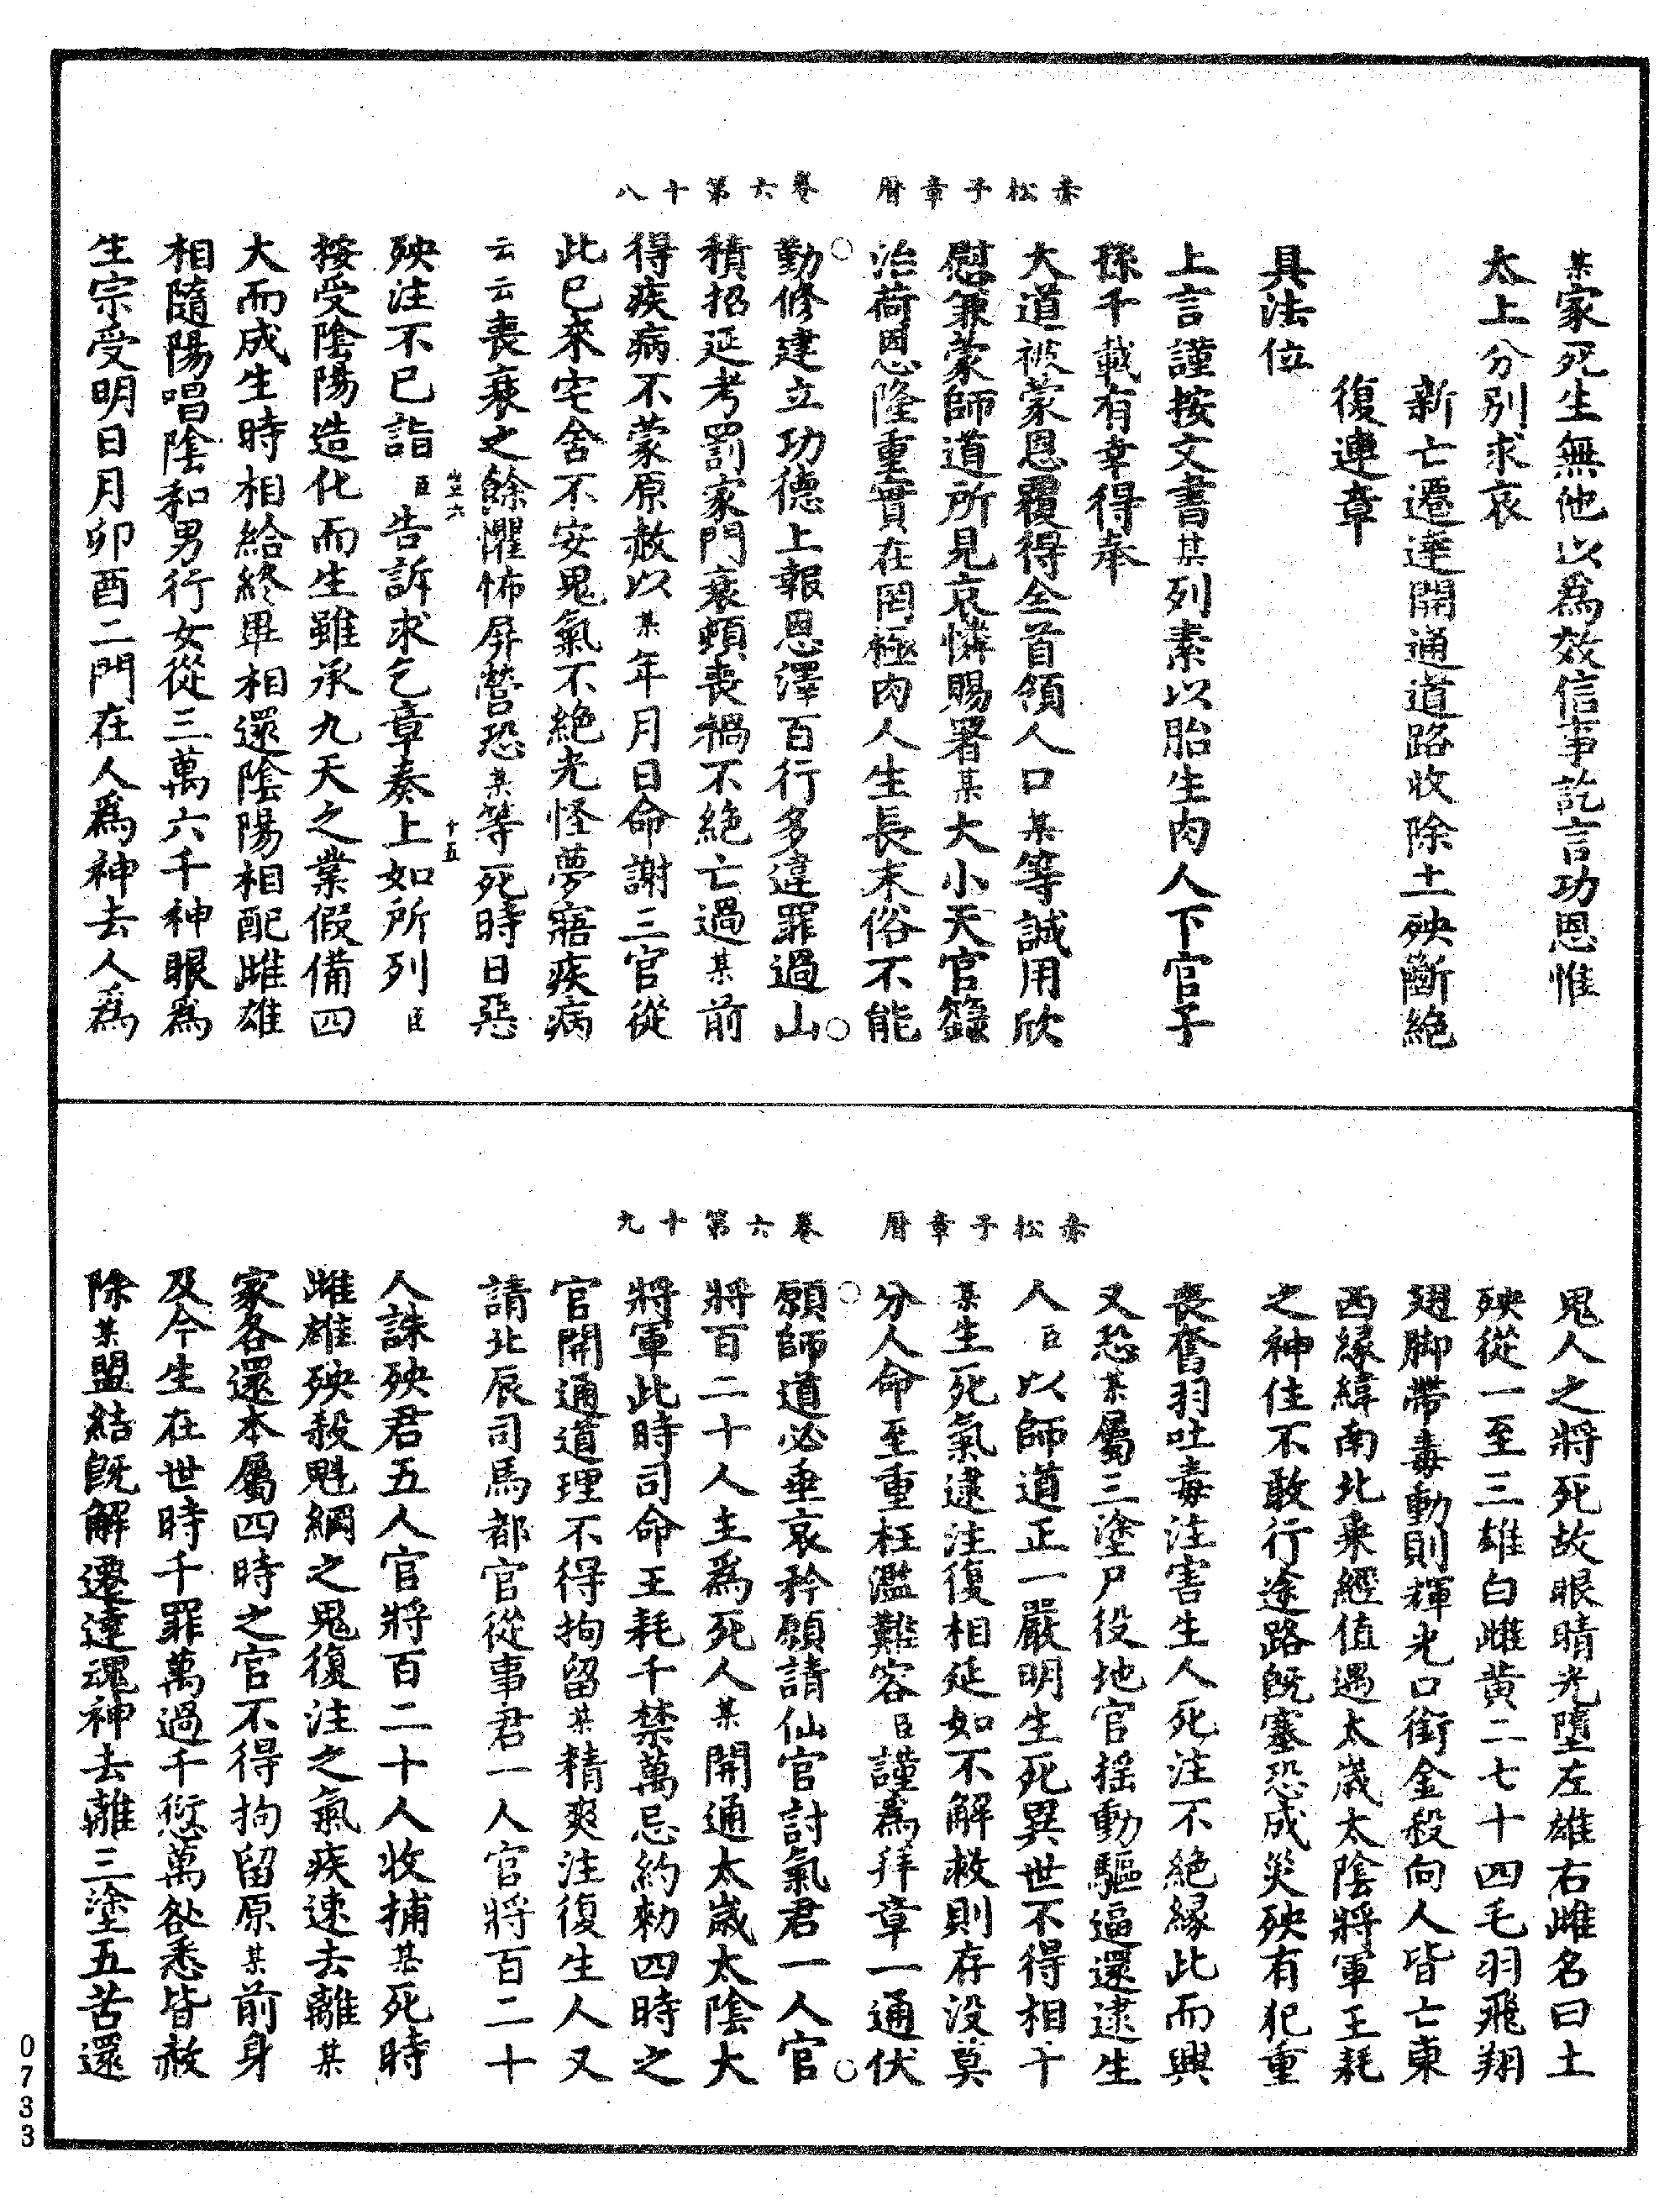 赤松子章曆　卷六第十八
某家死生無他以爲效信事訖言功恩惟
太上分別求哀
新亡遷達開通道路收除土殃斷絕
復連章
具法位
上言謹按文書某列素以胎生肉人下官子
孫千載有幸得奉
大道被蒙恩覆得全首領人口某等誠用欣
慰兼蒙師道所見哀憐賜署某大小天官籙
治荷恩隆重實在罔極肉人生長末俗不能
勤修建立功德上報恩澤百行多違罪過山
積招延考罰家門衰頓喪禍不絕亡過某前
得疾病不蒙原赦以某年月日命謝三官從
此已來宅舍不安鬼氣不絕光怪夢寤疾病
云云喪衰之餘懼怖屏營恐某等死時日惡
殃注不已詣臣告訴求乞章奏上如所列臣
按受陰陽造化而生雖承九天之業假備四
大而成生時相給終畢相還陰陽相配雌雄
相隨陽唱陰和男行女從三萬六千神眼爲
生宗受明日月卯酉二門在人爲神去人爲
赤松子章曆　卷六第十九
鬼人之將死故眼睛光墮左雄右雌名曰土
殃從一至三雄白雌黃二七十四毛羽飛翔
翅脚帶毒動則輝光口銜金殺向人皆亡東
西緣緯南北乘經值遇太歲太陰將軍王耗
之神住不敢行途路既塞恐成災殃有犯重
喪奮羽吐毒注害生人死注不絕緣此而興
又恐某屬三塗尸役地官搖動驅逼還逮生
人臣以師道正一嚴明生死異世不得相干
某生死氣逮注復相延如不解救則存没莫
分人命至重枉濫難容臣謹爲拜章一通伏
願師道必垂哀矜願請仙官討氣君一人官
將百二十人主爲死人某開通太歲太陰大
將軍此時司命王耗千禁萬忌約勑四時之
官開通道理不得拘留某精爽注復生人又
請北辰司馬都官從事君一人官將百二十
人誅殃君五人官將百二十人收捕某死時
雌雄殃殺魁綱之鬼復注之氣疾速去離某
家各還本屬四時之官不得拘留原某前身
及今生在世時千罪萬過千愆萬咎悉皆赦
除某盟結既解遷達魂神去離三塗五苦還
0733